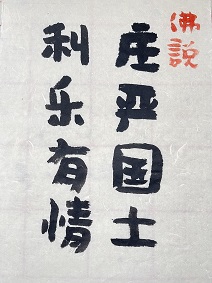 佛説
庄严国土
利乐有情